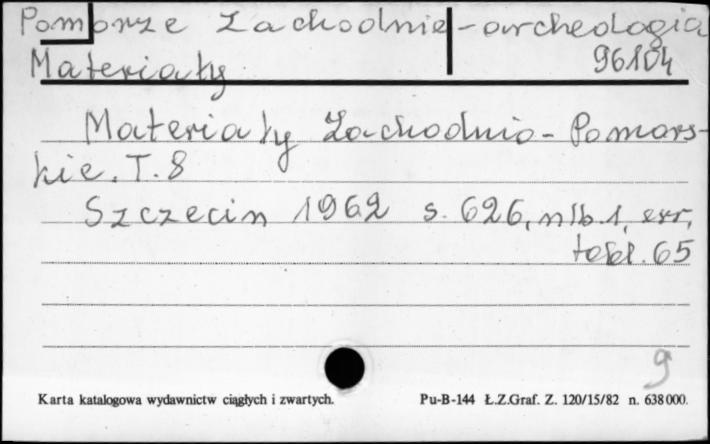 Pomorze Zachodnie - archeologia
Materiały 96104
Materiały Zachodnio-Pomors-
kie. T. 8
Szczecin 1962 s. 626, nlb. 1, err,
tabl. 65
9
Karta katalogowa wydawnictw ciągłych i zwartych. Pu-B-144 Ł.Z.Graf. Z. 120/15/82 n. 638000.